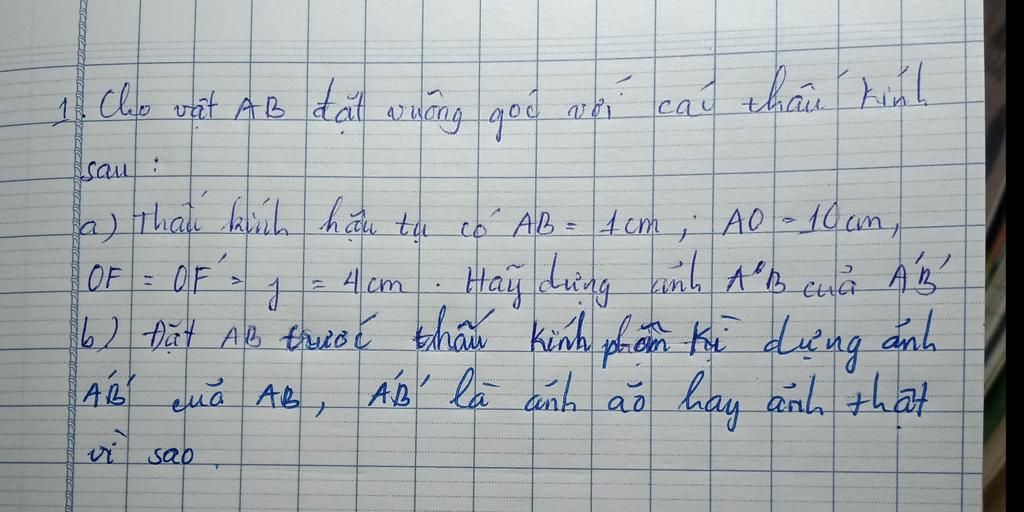 1. Cho vật AB đặt vuông góc với các thấu kính
sau :
a) Thấu kính hậu tụ có AB = 1cm ; AO = 10cm,
OF = OF' = f = 4cm . Hãy dựng ảnh A'B của A'B'
b) Đặt AB trước thấu kính phân kì dựng ảnh
A'B' của AB, A'B' là ảnh ảo hay ảnh thật
vì sao.